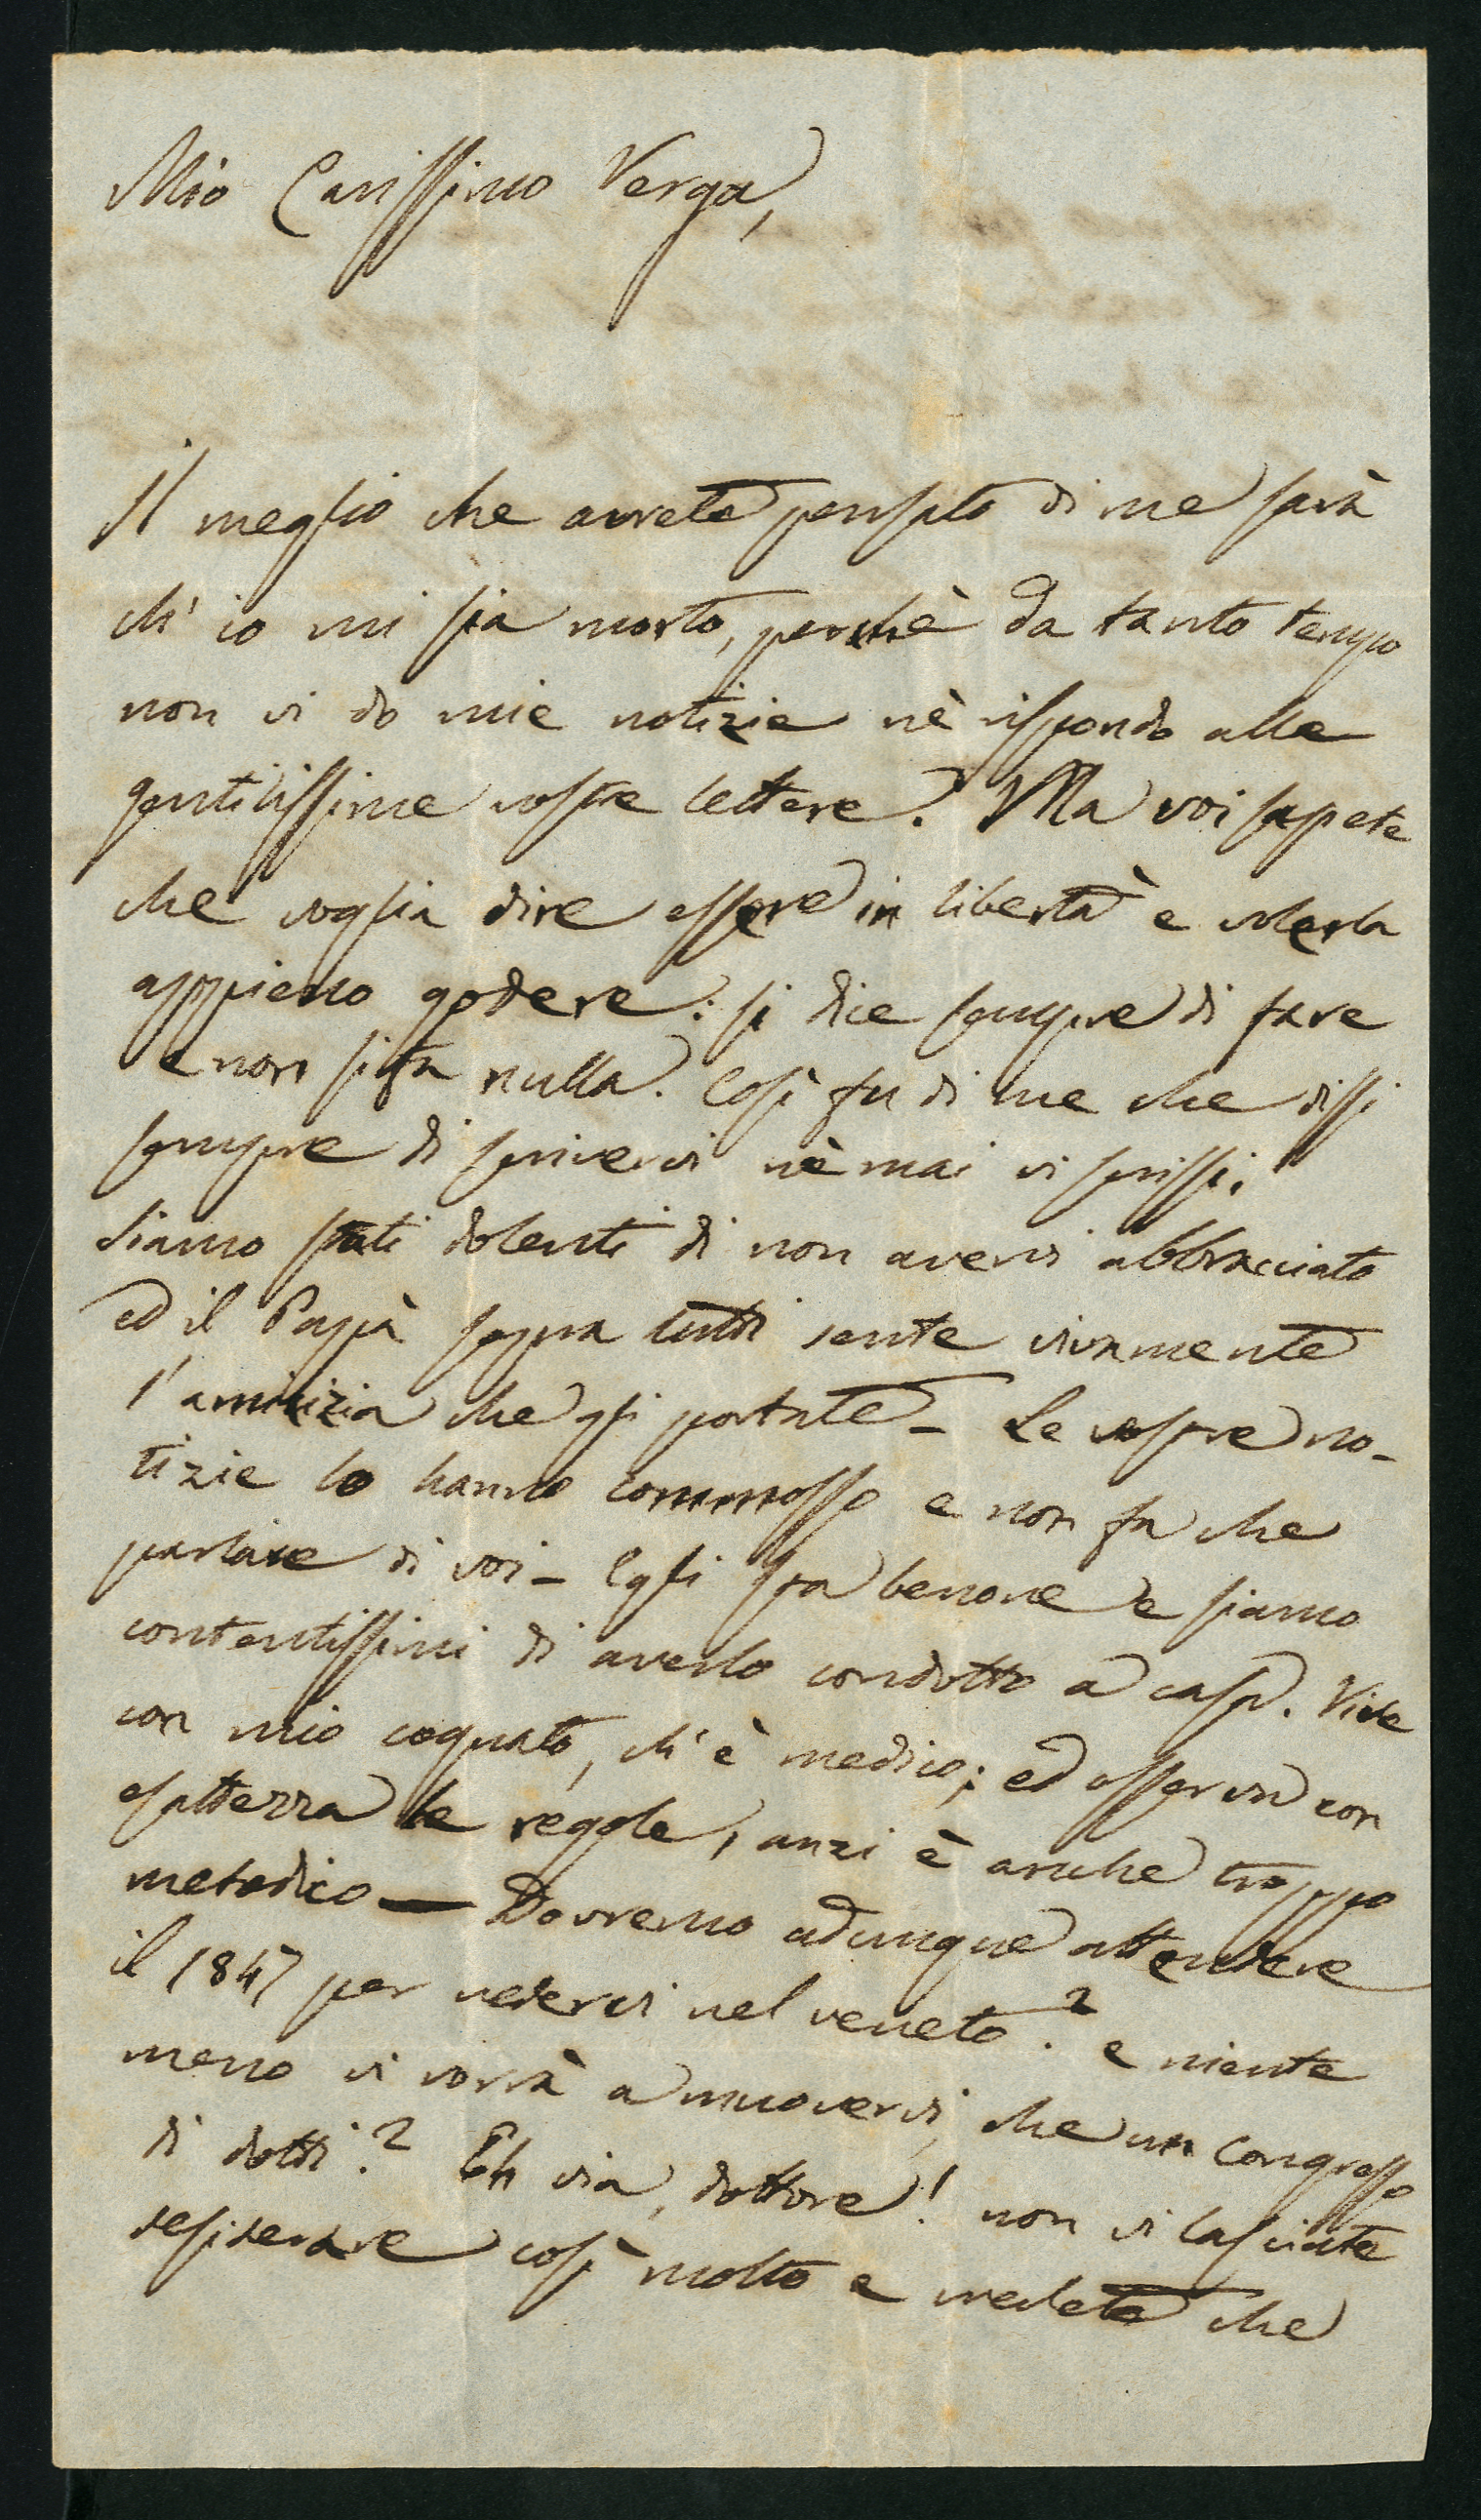 Mio Carissimo Verga,
Il meglio che avrete pensato di me sarà
ch'io mi sia morto, perchè da tanto tempo
non vi do mie notizie nè rispondo alle
gentilissime vostre lettere. Ma voi sapete
che voglia dire essere in libertà e volerla
appieno godere: si dice sempre di fare
e non si fa nulla. Così fu di me che dissi
sempre di scrivervi nè mai vi scrissi.
Siamo stati dolenti di non avervi abbracciato
ed il Papà sopra tutti sente vivamente
l'amicizia che gli portate – Le vostre no-
tizie lo hanno commosso e non fa che
parlare di voi – Egli sta benone e siamo
contentissimi di averlo condotto a casa. Vive
con mio cognato, ch'è medico; ed osserva con
esattezza le regole, anzi è anche troppo
metodico — Dovremo adunque attendere
il 1847 per vedervi nel veneto? e niente
meno vi vorrà a muovervi, che un Congresso
di dotti? Eh via, dottore! non vi lasciate
desiderare così molto e credete che